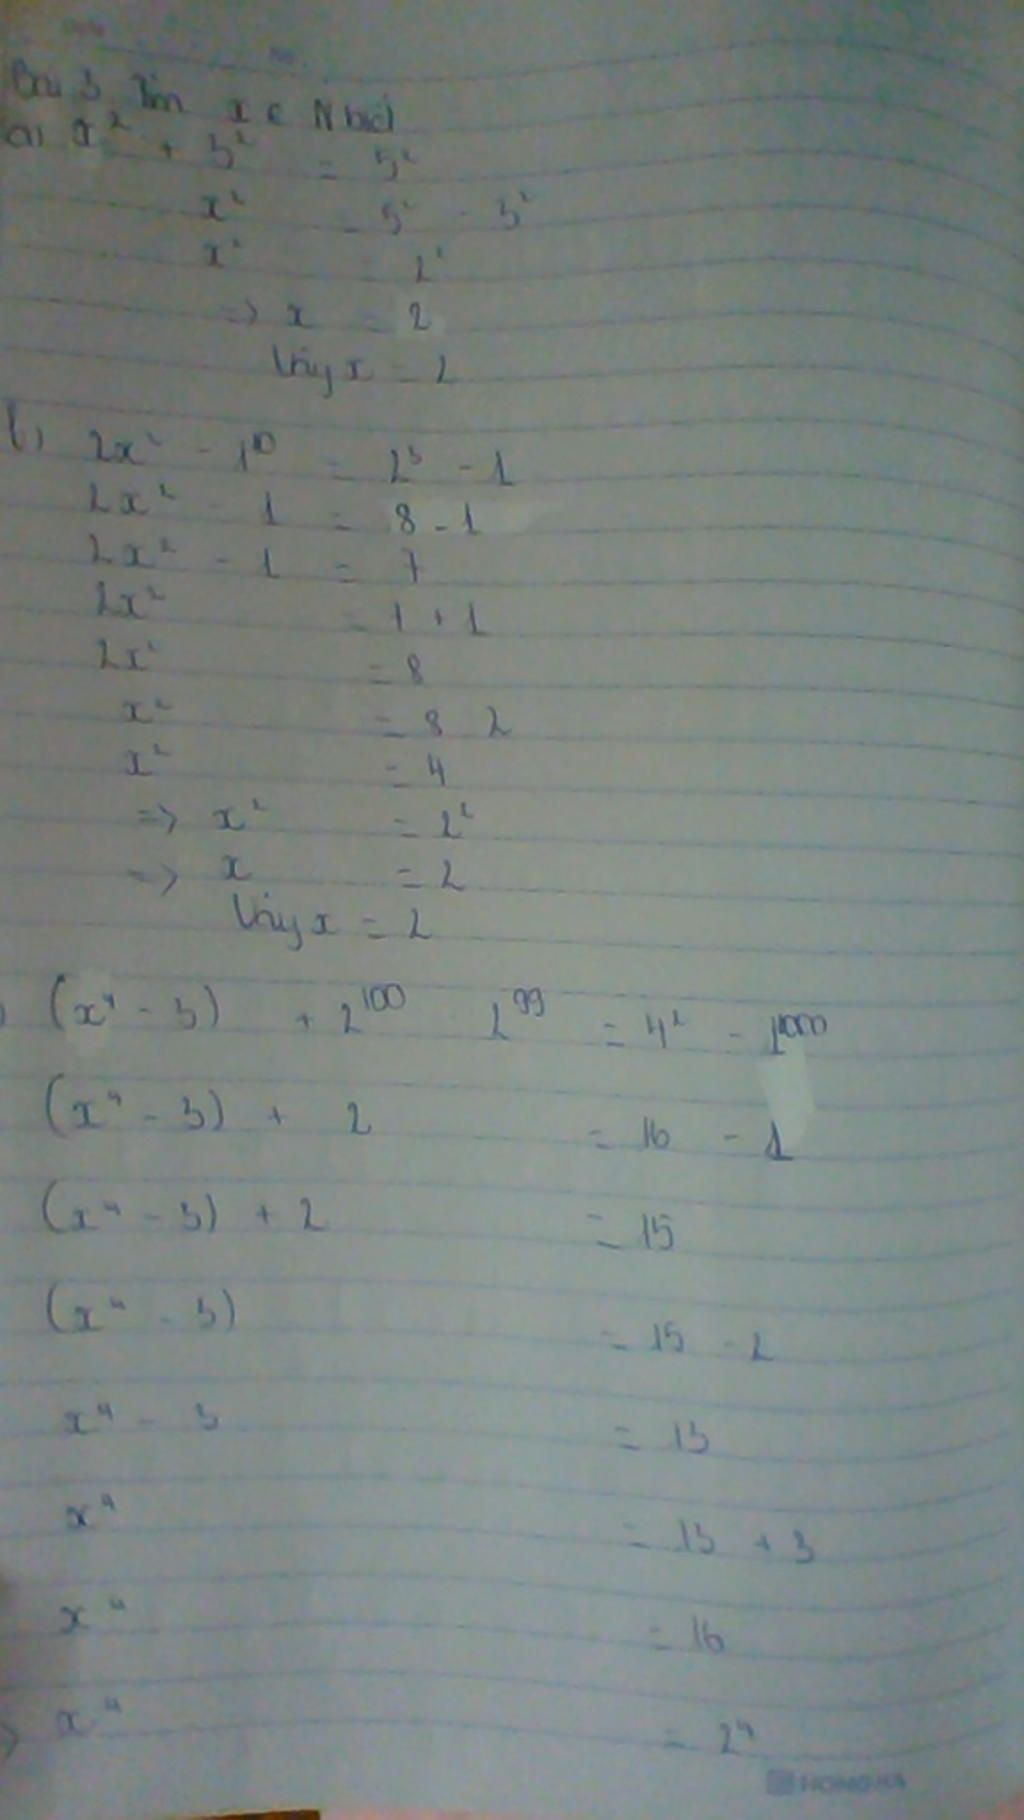 Bài 3 Tìm x ∈ N biết
a) x² + 3² = 5²
x² = 5² - 3²
x² = 2²
=> x = 2
Vậy x = 2
b) 2x² - 1¹⁰ = 2³ - 1
2x² - 1 = 8 - 1
2x² - 1 = 7
2x² = 7 + 1
2x² = 8
x² = 8 2
x² = 4
=> x² = 2²
=> x = 2
Vậy x = 2
) (x⁴ - 3) + 2¹⁰⁰ 2⁹⁹ = 4² - 1¹⁰⁰⁰
(x⁴ - 3) + 2 = 16 - 1
(x⁴ - 3) + 2 = 15
(x⁴ - 3) = 15 - 2
x⁴ - 3 = 13
x⁴ = 13 + 3
x⁴ = 16
> x⁴ = 2⁴
HONG HA